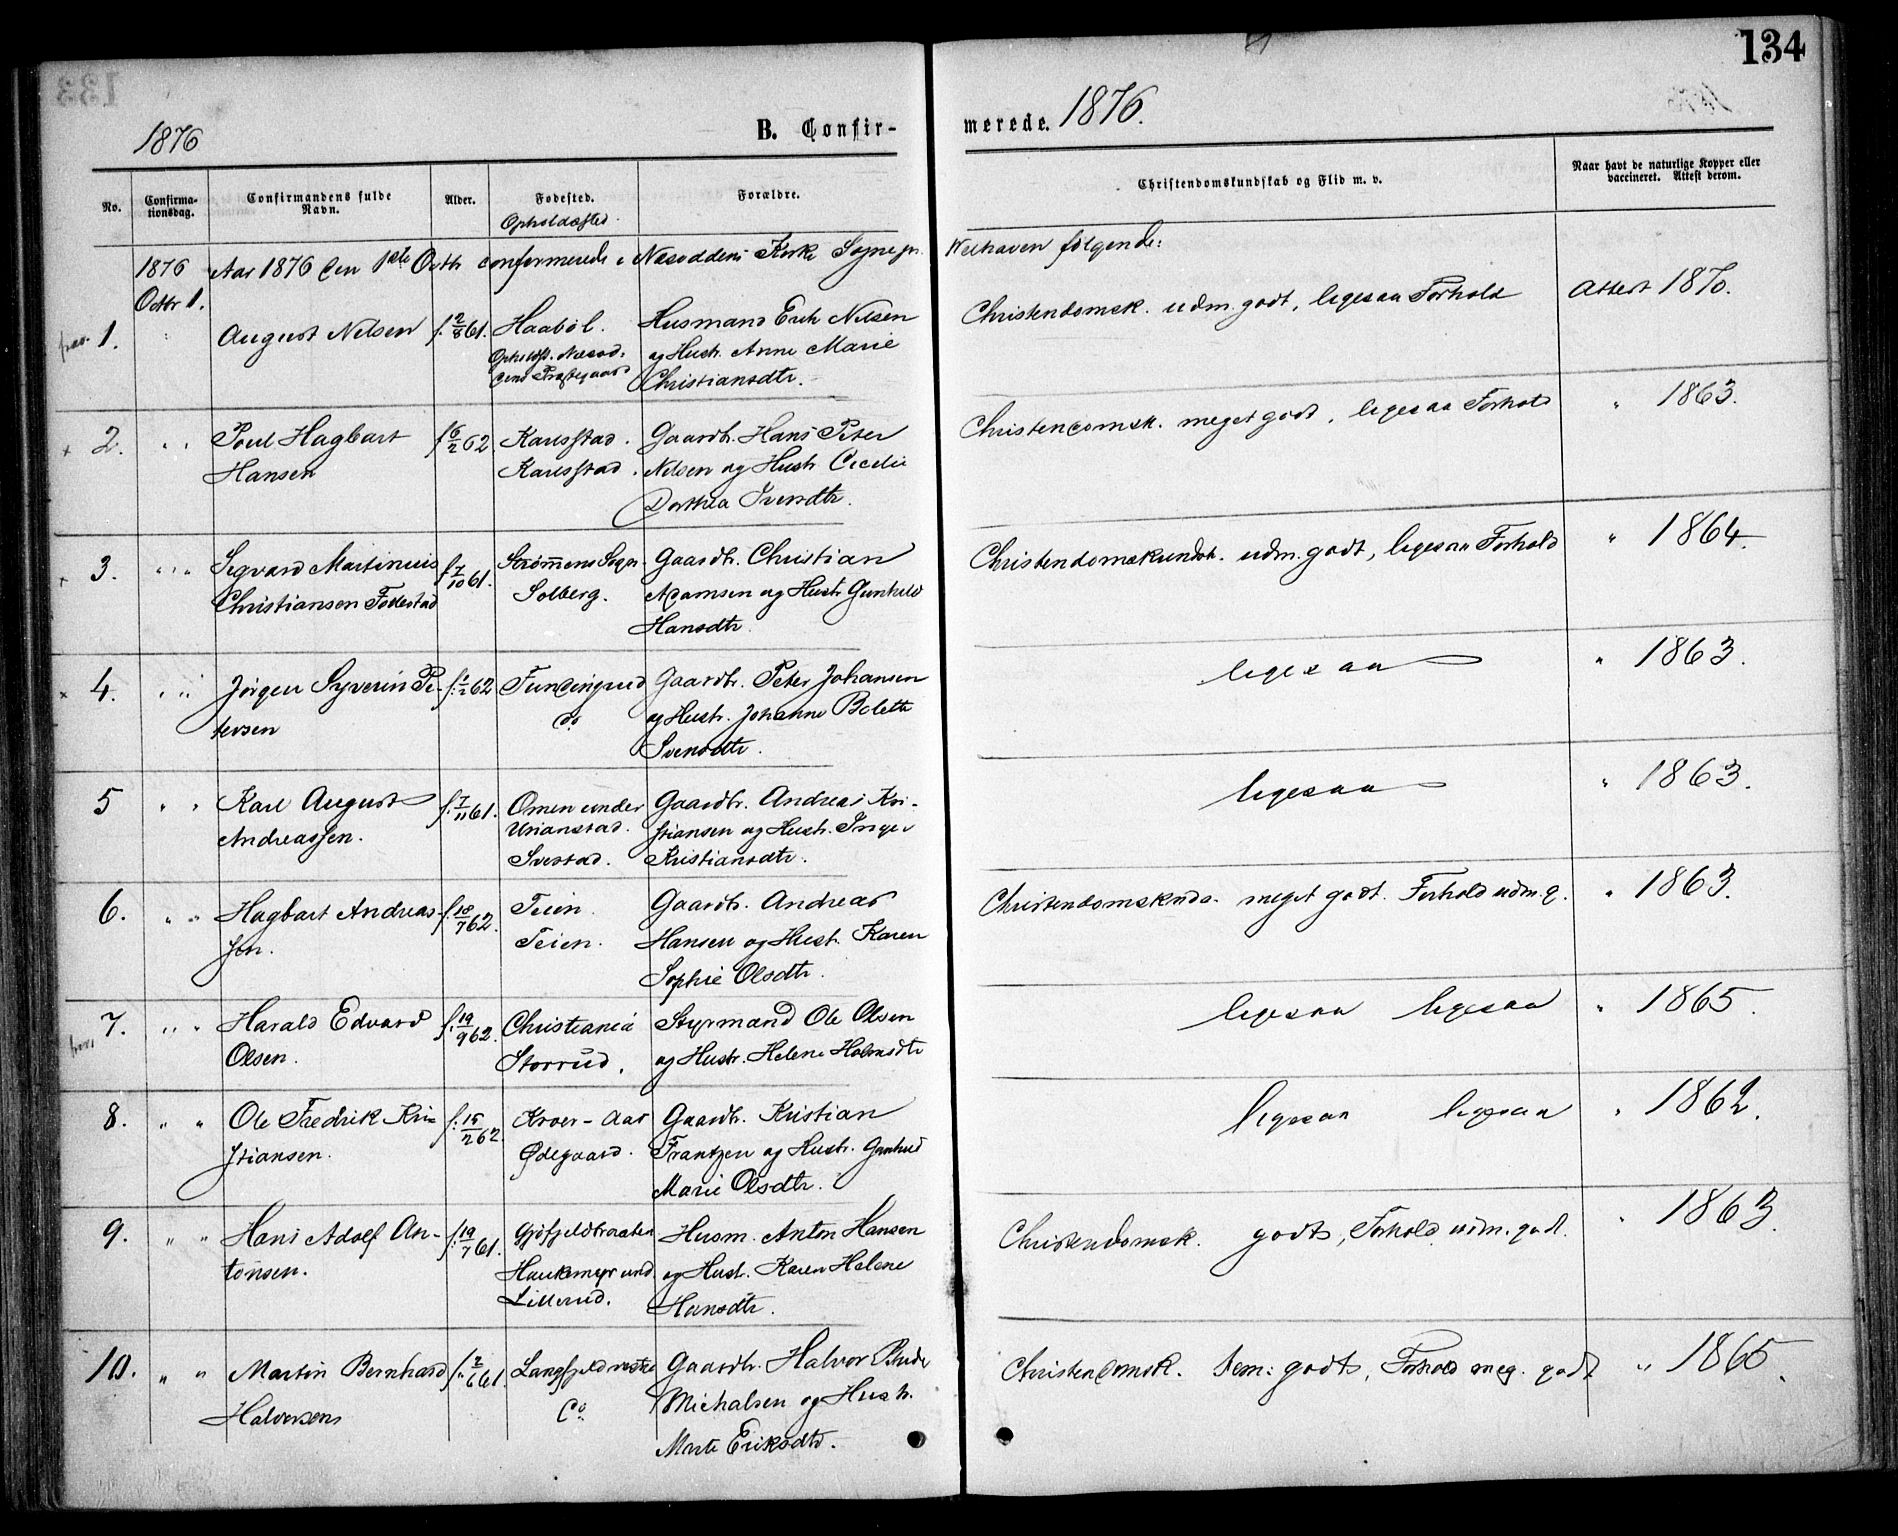 134
1876
B. Confir-
merede. 1876.
No.
Confirma-
tionsdag.
Confirmandens fulde
Navn.
Alder.
Fødested.
Opholdssted.
Forældre.
Christendomskundskab og Flid m. v.
Naar havt de naturlige Kopper eller
vaccineret. Attest derom.
1876
Octbr 1.
Aar 1876 den 1ste Octbr confirmerede i Næsoddens Kirke Sognepr.
Welhaven følgende:
1.
August Nilsen
f. 2/8 61.
Haabøl.
Opholdst. Næsod-
dens Præstegaard
Husmand Erik Nilsen
og Hustr. Anne Marie
Christiansdtr.
Christendomsk. udm. godt, ligesaa Forhold
Attest 1870.
2. " "
Poul Hagbart
Hansen
f. 6/2 62
Karlsstad.
Karlsstad.
Gaardbr. Hans Peter
Nilsen og Hustr Cecilie
Dorthea Iversdtr.
Christendomsk. meget godt, ligesaa Forhold
" 1863.
3. " "
Sigvard Martinius
Christiansen Fodestad
f. 7/10 61.
Strømmens Sogn
Solberg.
Gaardbr. Christian
Adamsen og Hustr Gunhild
Hansdtr.
Christendomskundsk. udm. godt, ligesaa Forhold
" 1864.
4. " "
Jørgen Syverin Pe-
tersen
f. 1/2 62
Fundingrud
do.
Gaardbr. Peter Johansen
og Hustr. Johanne Bolette
Svensdtr.
ligesaa
" 1863.
5 " "
Karl August
Andreassen.
f. 7/11 61.
Omen under
Urianstad.
Svestad.
Gaardbr. Andreas Kri-
stiansen og Hustr. Inge
Kristiansdtr.
ligesaa
" 1863.
6. " "
Hagbart Andreas-
sen.
f. 18/7 62.
Teien.
Teien.
Gaardbr. Andreas
Hansen og Hustr. Karen
Sophie Olsdtr.
Christendomskunds. meget godt. Forhold udm. g.
" 1863.
7. " "
Harald Edvard
Olsen.
f. 19/9 62.
Christiania
Storrud.
Styrmand Ole Olsen
og Hustr. Helene Halvorsdtr
ligesaa ligesaa
" 1865.
8. " "
Ole Fredrik Kri-
stiansen.
f. 15/2 62.
Kroer - Aas
Ødegaard.
Gaardbr. Kristian
Frantzen og Hustr. Gunhild
Marie Olsdtr.
ligesaa ligesaa
" 1862.
9. " "
Hans Adolf An-
tonsen.
f. 19/7 61.
Gjøfjeldbraaten
Haukemyr und.
Lillerud.
Husm. Anton Hansen
og Hustr. Karen Helene
Hansdtr.
Christendomsk. godt, Forhold udm. godt.
" 1863.
10. " "
Martin Bernhard
Halvorsen
f. 2/6 61.
Langfjeld vestre
do.
Gaardbr. Halvor
Michalsen og Hustr.
Marte Eriksdtr.
Christendomsk. tem: godt, Forhold meg. godt
" 1865.